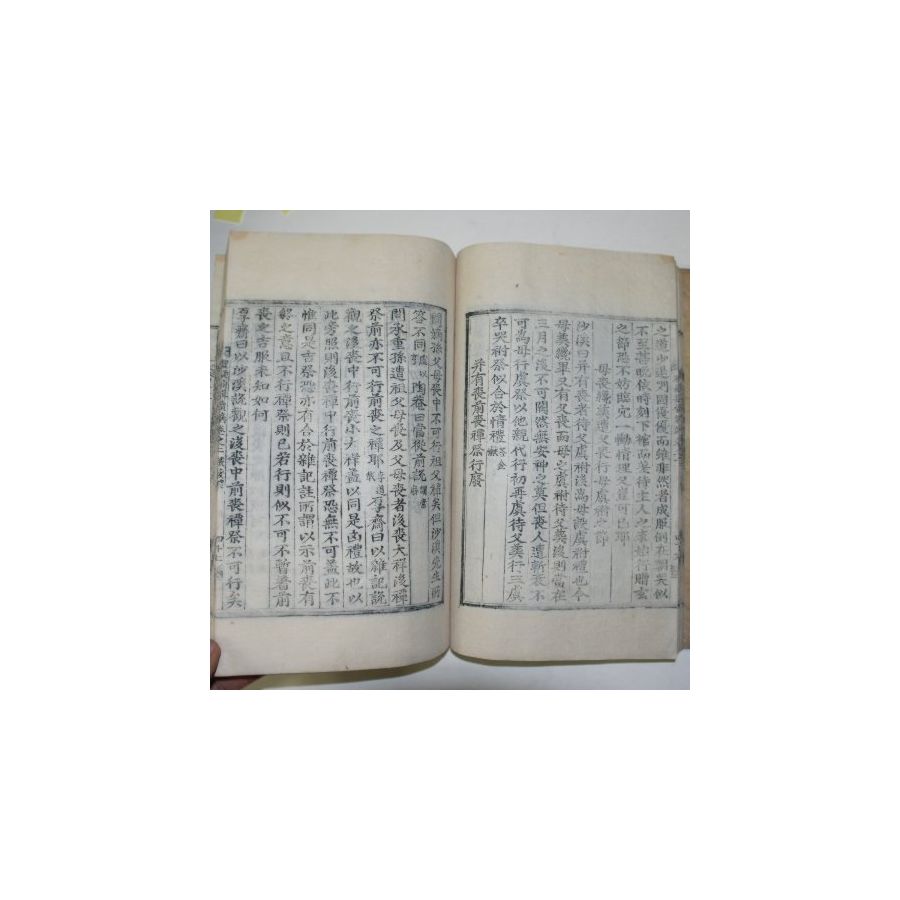 之道沙溪則固優而雖非然者成服
不至昏晚使時刻下棺而葬待主人之
之節恐不妨臨完一
母喪將葬遭父喪行母虞祔之節
沙溪曰并有喪者待父虞祔後為母設虞祔禮也今
母葬纔畢又有父喪而母之虞祔待父葬後則當在
三月之後不可闕然無安神之奠但喪人遭斬衰不
可為母行虞祭以他親代行初再虞待父葬行三虞
卒哭祔祭似合於情禮
并有喪前喪禫祭行廢
問嫡孫父母喪中不可行祖父禫矣但沙溪先生所
答不同 陶庵曰當從前說
問承重孫遭祖父母喪及父母喪者後喪大祥後禫
祭前亦不可行前喪之禫耶 厚齋曰以雜記說
觀之後喪中行前喪小大祥蓋以同是凶禮故也以
此旁照則後喪禫中行前喪禫祭恐無不可蓋此不
惟同是吉祭恐亦有合於雜記註所謂以示前喪有
終之意且不行禫祭則已若行則似不可不暫着前
喪之吉服未知如何
厚齋曰以沙溪說觀之後喪中前喪禫祭不可行矣